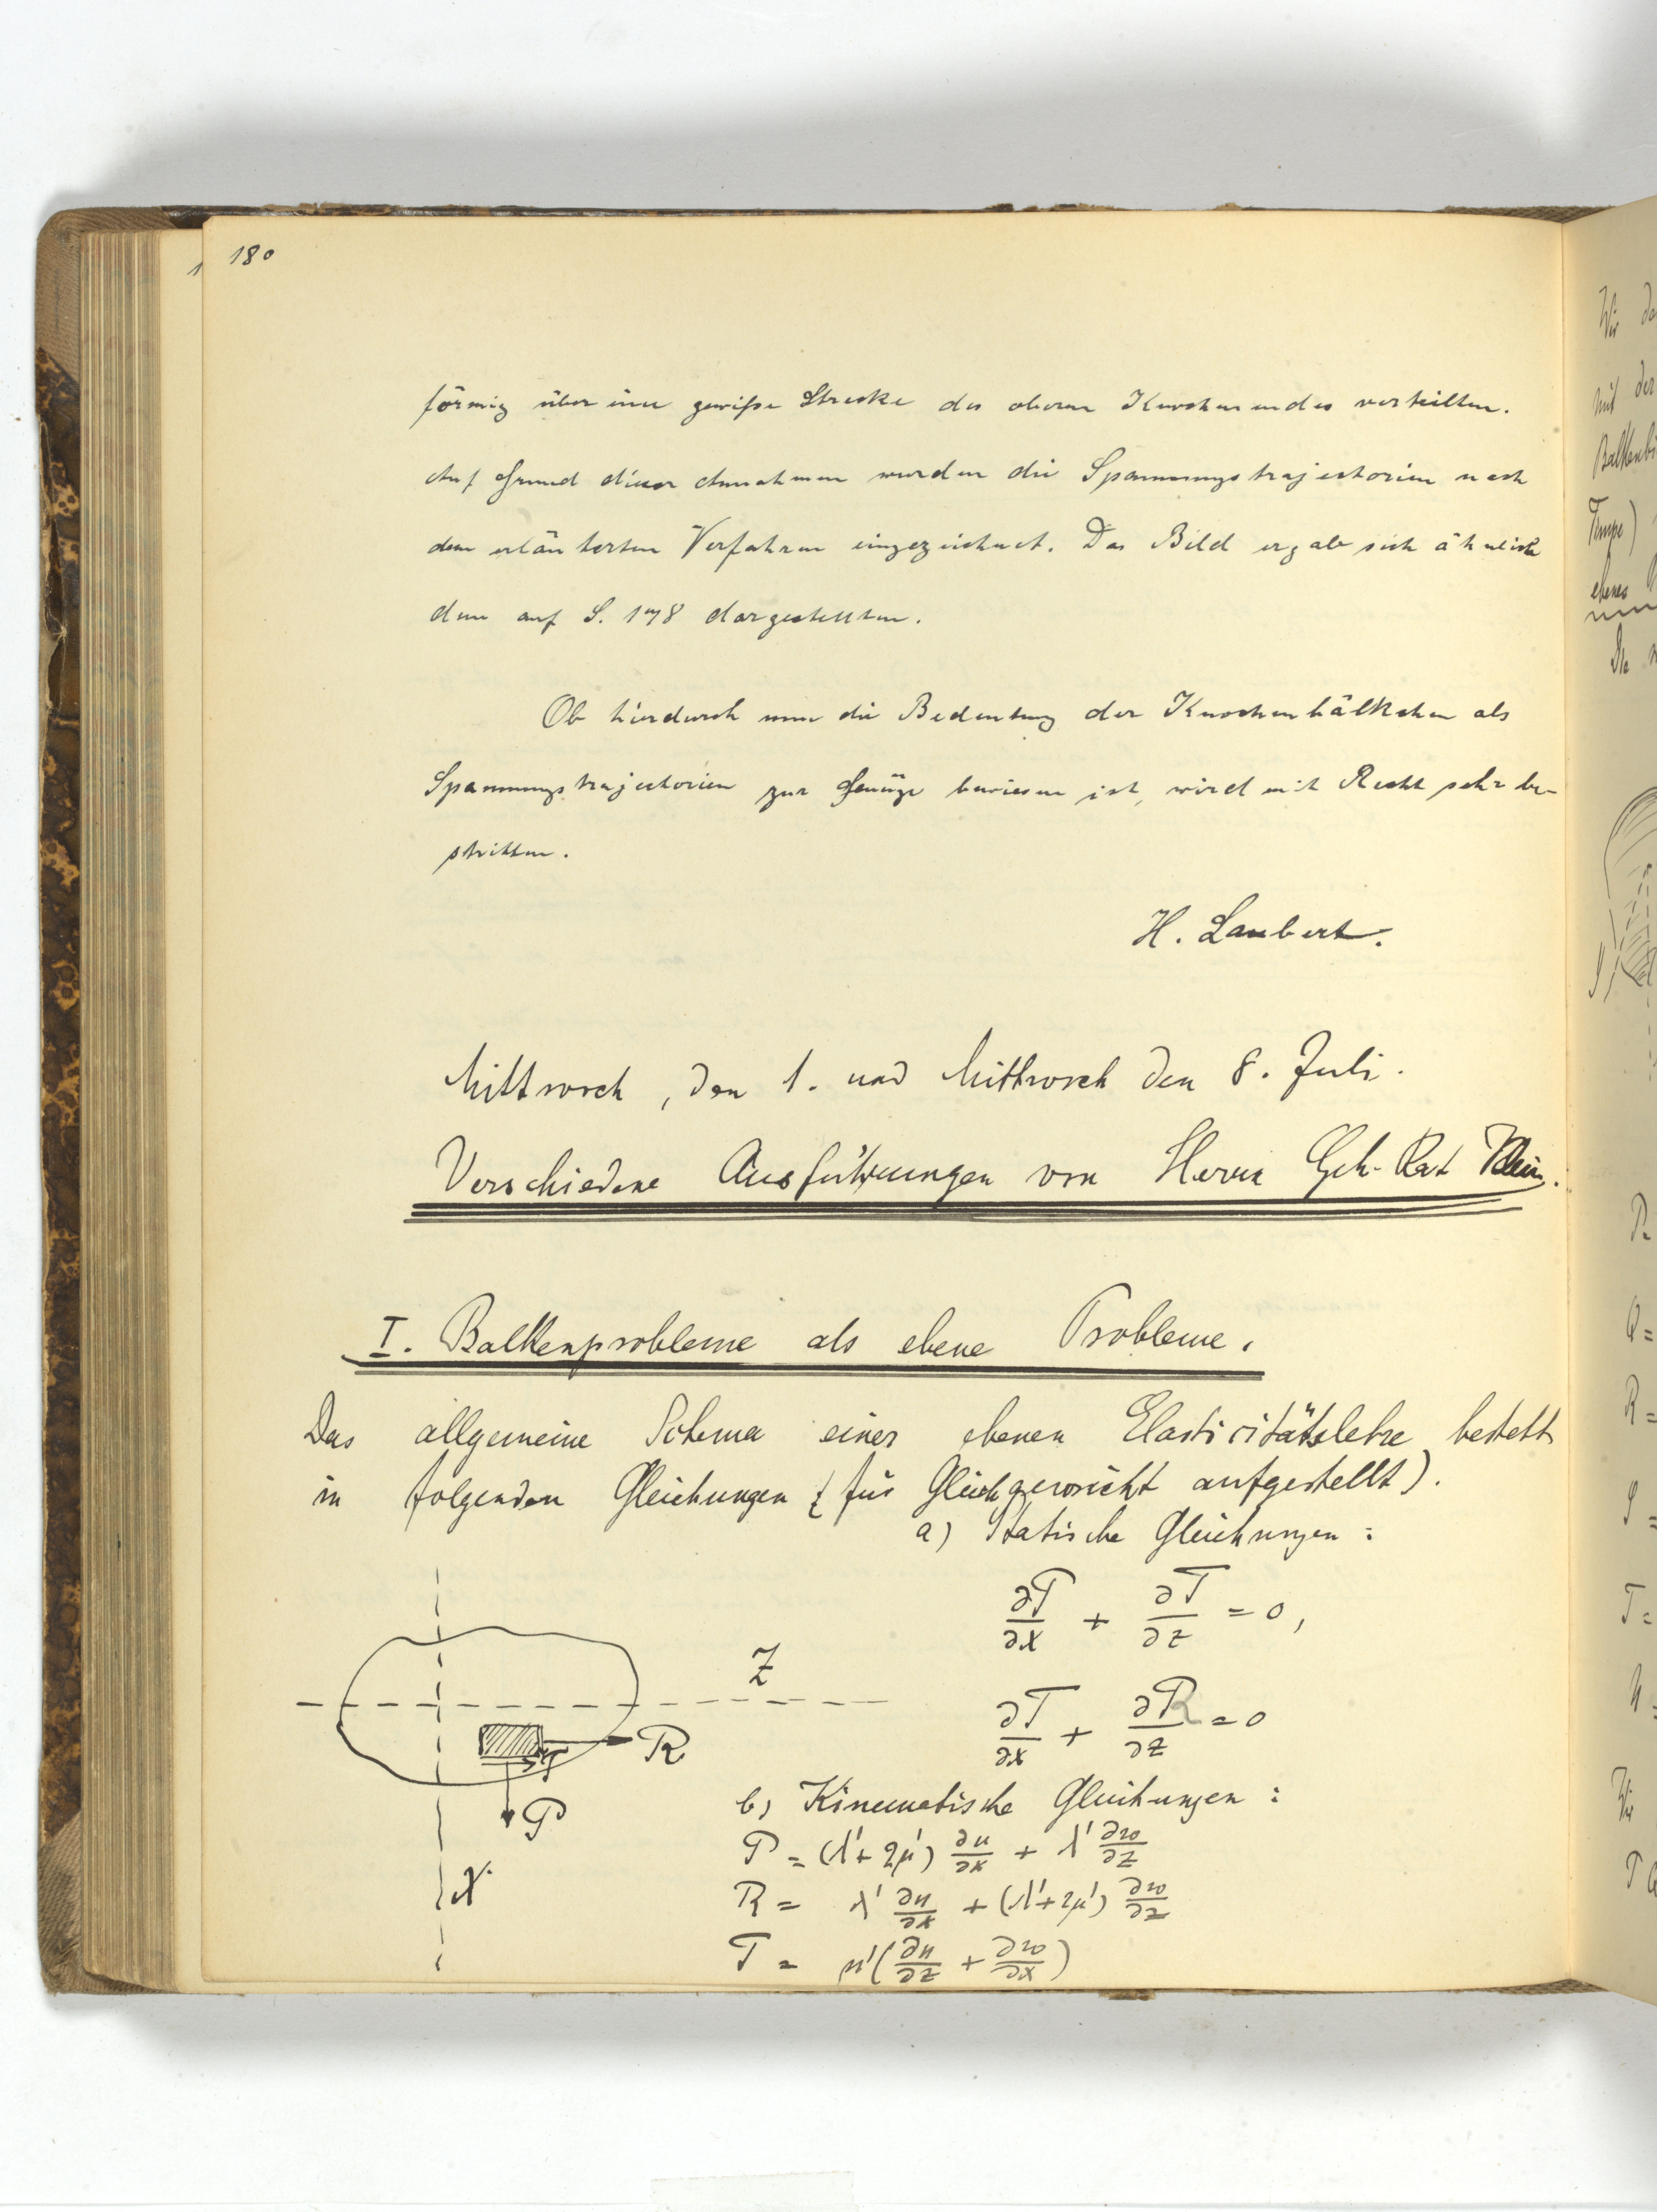 180
förmig über eine gewiße Strecke des oberen Knochenendes verteilten.
Auf Grund dieser Annahmen wurden die Spannungstrajectorien nach
dem erläuterten Verfahren eingezeichnet. Das Bild ergab sich ähnlich
dem auf S. 178 dargestellten.
Ob hierdurch nun die Bedeutung der Knochenbälkchen als
Spannungstrajectorien zur Genüge bewiesen ist, wird mit Recht sehr be-
stritten.
H. Laubert.
Mittwoch, den 1. und Mittwoch den 8. Juli.
Verschiedene Ausführungen von Herrn Geh. Rat Klein.
I. Balkenprobleme als ebene Probleme.
Das allgemeine Schema einer ebenen Elasticitätslehre besteht
in folgenden Gleichungen (für Gleichgewicht aufgestellt).
a) Statische Gleichungen:
∂P/∂x + ∂T/∂z = 0,
Z
∂T/∂x + ∂R/∂z = 0
R
T
b) Kinematische Gleichungen:
P
P = (λ'+2μ') ∂u/∂x + λ' ∂w/∂z
X
R = λ' ∂u/∂x + (λ'+2μ') ∂w/∂z
T = μ'(∂u/∂z + ∂w/∂x)